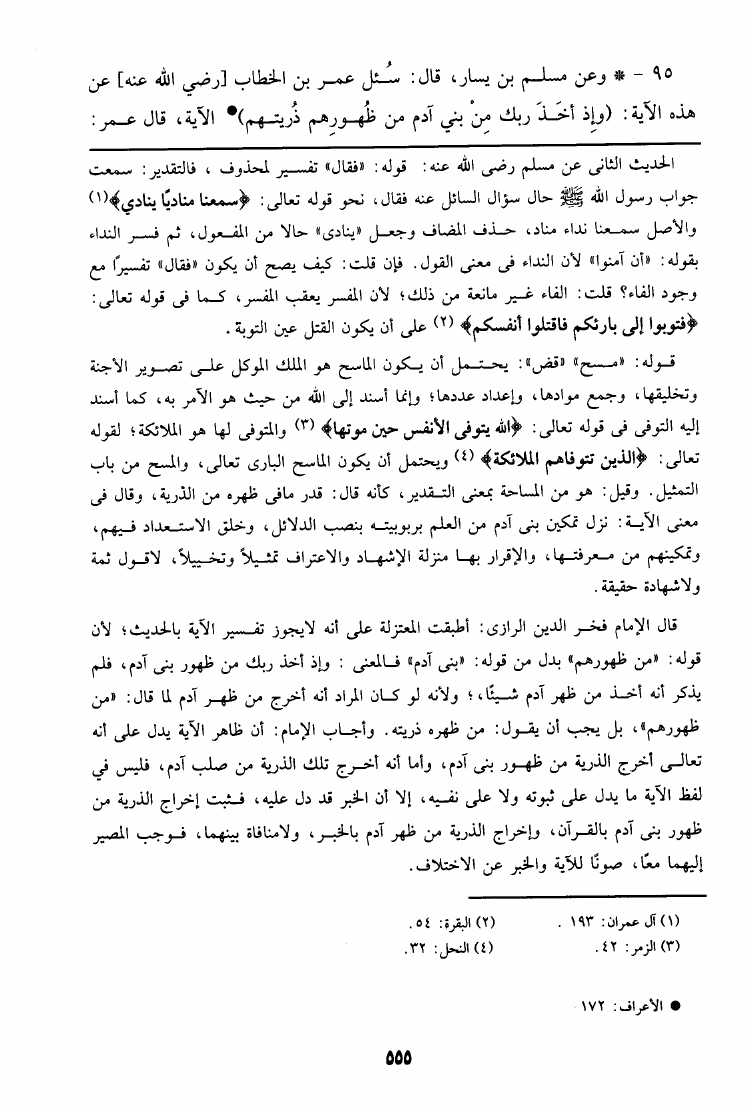 ٩٥ - * وعن مسلم بن يسار، قال: سُئل عمر بن الخطاب [رضي الله عنه] عن
هذه الآية: (وإذ أخَذَ ربك مِنْ بني آدم من ظُهورِهم ذُريتهم)● الآية، قال عمر:
الحديث الثانى عن مسلم رضى الله عنه: قوله: «فقال» تفسير لمحذوف ، فالتقدير: سمعت
جواب رسول الله ﷺ حال سؤال السائل عنه فقال، نحو قوله تعالى: ﴿سمعنا مناديًا ينادي﴾(١)
والأصل سمعنا نداء مناد، حذف المضاف وجعل «ينادى» حالا من المفعول، ثم فسر النداء
بقوله: «أن آمنوا» لأن النداء فى معنى القول. فإن قلت: كيف يصح أن يكون «فقال» تفسيرًا مع
وجود الفاء؟ قلت: الفاء غير مانعة من ذلك؛ لأن المفسر يعقب المفسر، كما فى قوله تعالى:
﴿فتوبوا إلى بارئكم فاقتلوا أنفسكم﴾ (٢) على أن يكون القتل عين التوبة .
قوله: «مسح» «قض»: يحتمل أن يكون الماسح هو الملك الموكل على تصوير الأجنة
وتخليقها، وجمع موادها، وإعداد عددها؛ وإنما أسند إلى الله من حيث هو الآمر به، كما أسند
إليه التوفى فى قوله تعالى: ﴿الله يتوفى الأنفس حين موتها﴾ (٣) والمتوفى لها هو الملائكة؛ لقوله
تعالى: ﴿الذين تتوفاهم الملائكة﴾ (٤) ويحتمل أن يكون الماسح البارى تعالى، والمسح من باب
التمثيل. وقيل: هو من المساحة بمعنى التقدير، كأنه قال: قدر مافى ظهره من الذرية، وقال فى
معنى الآية: نزل تمكين بنى آدم من العلم بربوبيته بنصب الدلائل، وخلق الاستعداد فيهم،
وتمكينهم من معرفتها، والإقرار بها منزلة الإشهاد والاعتراف تمثيلاً وتخييلاً، لاقول ثمة
ولاشهادة حقيقة.
قال الإمام فخر الدين الرازى: أطبقت المعتزلة على أنه لايجوز تفسير الآية بالحديث؛ لأن
قوله: «من ظهورهم» بدل من قوله: «بنى آدم» فالمعنى : وإذ أخذ ربك من ظهور بنى آدم، فلم
يذكر أنه أخذ من ظهر آدم شيئًا،؛ ولأنه لو كان المراد أنه أخرج من ظهر آدم لما قال: «من
ظهورهم»، بل يجب أن يقول: من ظهره ذريته. وأجاب الإمام: أن ظاهر الآية يدل على أنه
تعالى أخرج الذرية من ظهور بنى آدم، وأما أنه أخرج تلك الذرية من صلب آدم، فليس في
لفظ الآية ما يدل على ثبوته ولا على نفيه، إلا أن الخبر قد دل عليه، فثبت إخراج الذرية من
ظهور بنى آدم بالقرآن، وإخراج الذرية من ظهر آدم بالخبر، ولامنافاة بينهما، فوجب المصير
إليهما معًا، صونًا للآية والخبر عن الاختلاف.
(١) آل عمران: ١٩٣ . (٢) البقرة: ٥٤ .
(٣) الزمر: ٤٢. (٤) النحل: ٣٢.
● الأعراف: ١٧٢
٥٥٥